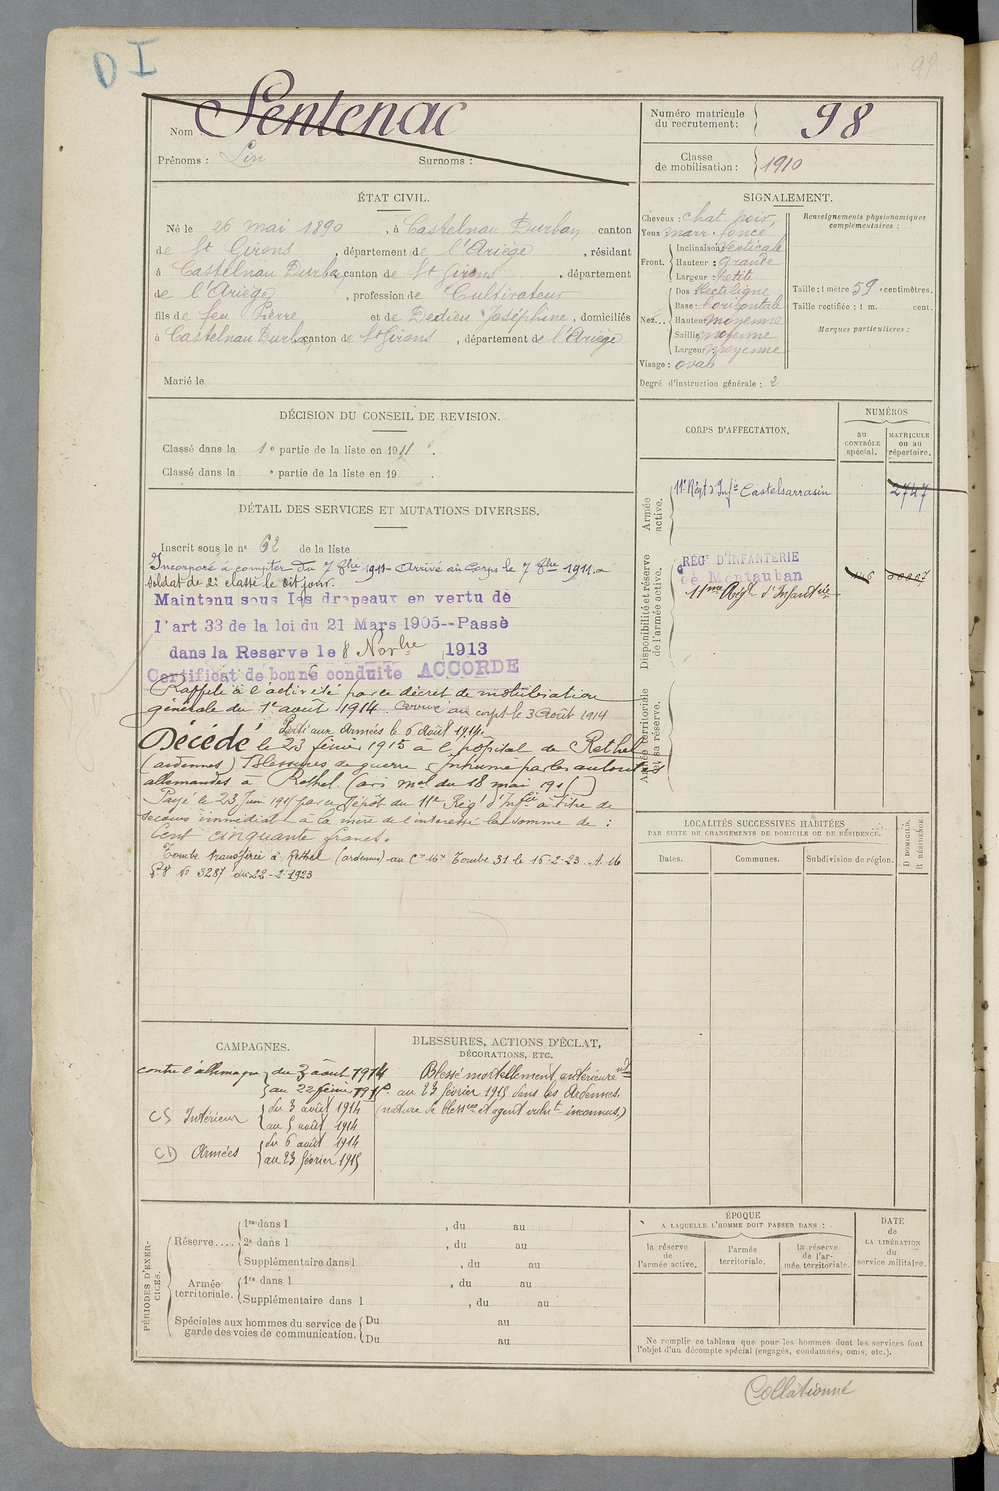 DI
98
Nom : Sentenac
Prénoms : Lin Surnoms :
Numéro matricule du recrutement : 98
Classe de mobilisation : 1910
ÉTAT CIVIL.
Né le 26 mai 1890, à Castelnau Durban canton
de St Girons, département de l'Ariège, résidant
à Castelnau Durban canton de St Girons, département
de l'Ariège, profession de Cultivateur
fils de feu Pierre et de Dedieu Joséphine, domiciliés
à Castelnau Durban canton de St Girons, département de l'Ariège
Marié le
SIGNALEMENT.
Cheveux : chat. noir,
Yeux marr. foncé
Front. Inclinaison : Verticale
Hauteur : Grande
Largeur : Petite
Nez... Dos Rectiligne
Base : horizontale
Hauteur moyenne
Saillie moyenne
Largeur moyenne
Visage : ovale
Degré d'instruction générale : 2
Renseignements physionomiques complémentaires :
Taille : 1 mètre 59 centimètres.
Taille rectifiée : 1 m. cent.
Marques particulières :
DÉCISION DU CONSEIL DE REVISION.
Classé dans la 1e partie de la liste en 1911.
Classé dans la e partie de la liste en 19
DÉTAIL DES SERVICES ET MUTATIONS DIVERSES.
Inscrit sous le n° 62 de la liste
Incorporé à compter du 7 8bre 1911 - Arrivé au Corps le 7 8bre 1911.
soldat de 2e classe le dit jour.
Maintenu sous les drapeaux en vertu de
l'art 33 de la loi du 21 Mars 1905--Passé
dans la Reserve le 8 Novbre 1913
Certificat de bonne conduite ACCORDE
Rappelé à l'activité par le décret de mobilisation
générale du 1er août 1914. Arrivé au corps le 3 Août 1914
Parti aux Armées le 6 Août 1914.
Décédé le 23 février 1915 à l'hôpital de Rethel
(ardennes) Blessures de guerre. Inhumé par les autorités
allemandes à Rethel. (avis mel du 18 mai 1915)
Payé le 23 Juin 1915 par le Dépôt du 11e Régt d'Infie à titre de
secours immédiat à la mère de l'intéressé la somme de :
Cent cinquante francs.
Tombe transférée à Rethel (ardennes) au Tombe 31 le 15-2-23
N° 3287 du 22-2-1923
CORPS D'AFFECTATION.
NUMÉROS
au CONTRÔLE spécial.
MATRICULE ou au répertoire.
Armée active.
11e Régt d'Infie Castelsarrasin 2747
Disponibilité et réserve de l'armée active.
RÉGt D'INFANTERIE
de Montauban
11me Régt d'Infanterie
Armée territoriale et sa réserve.
LOCALITÉS SUCCESSIVES HABITÉES
PAR SUITE DE CHANGEMENTS DE DOMICILE OU DE RÉSIDENCE.
D DOMICILE.
R RÉSIDENCE.
Dates. Communes. Subdivision de région.
CAMPAGNES.
contre l'allemagne du 3 août 1914
au 22 février 1915
CS Intérieur du 3 août 1914
au 5 août 1914
CD Armées du 6 août 1914
au 23 février 1915
BLESSURES, ACTIONS D'ÉCLAT,
DÉCORATIONS, ETC.
Blessé mortellement antérieuremt
au 23 février 1915 dans les Ardennes.
(nature de bless. et agent vulnt inconnus)
PÉRIODES D'EXERCICES.
Réserve.... 1re dans l , du au
2e dans l , du au
Supplémentaire dans l , du au
Armée territoriale. 1re dans l , du au
Supplémentaire dans l , du au
Spéciales aux hommes du service de garde des voies de communication. Du au
Du au
ÉPOQUE
A LAQUELLE L'HOMME DOIT PASSER DANS :
la réserve de l'armée active.
l'armée territoriale.
la réserve de l'armée territoriale.
DATE de LA LIBÉRATION du service militaire.
Ne remplir ce tableau que pour les hommes dont les services font
l'objet d'un décompte spécial (engagés, condamnés, omis, etc.).
Collationné